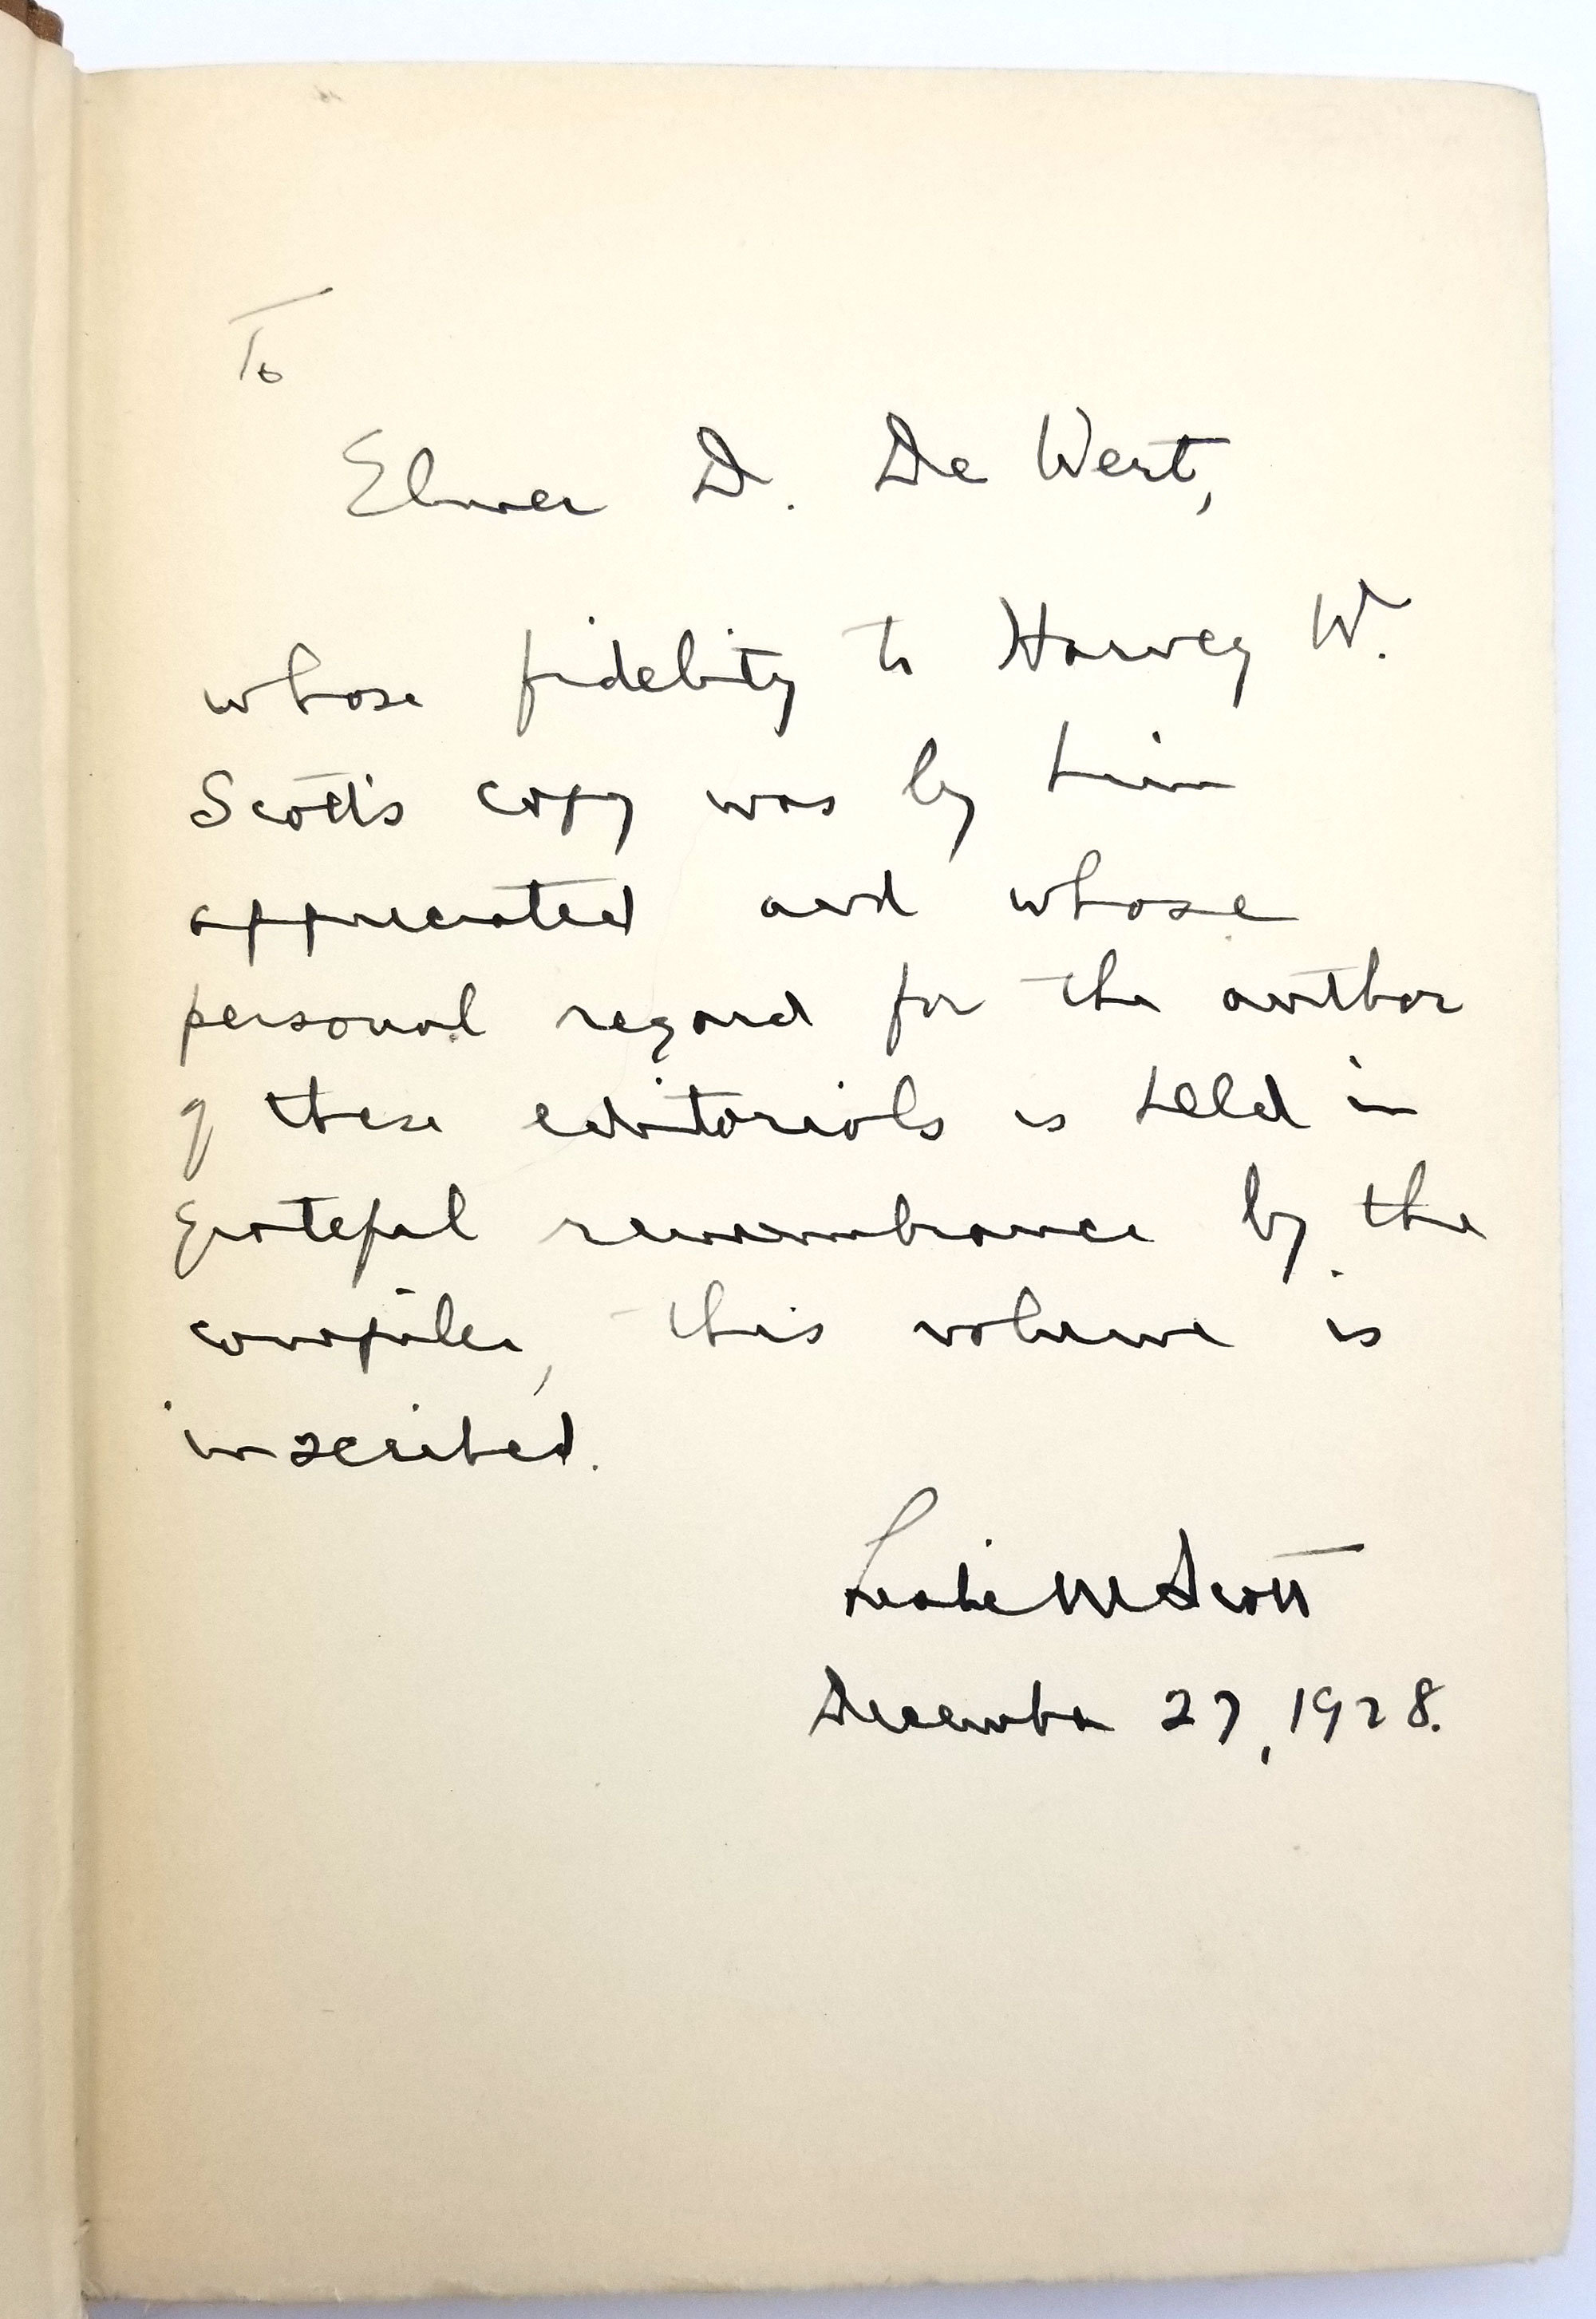 To
Elmer D. De Wert,
whose fidelity to Harvey W.
Scott's copy was by him
appreciated and whose
personal regard for the author
of these editorials is held in
grateful remembrance by the
compiler, this volume is
inscribed.
Leslie M Scott
December 27, 1928.